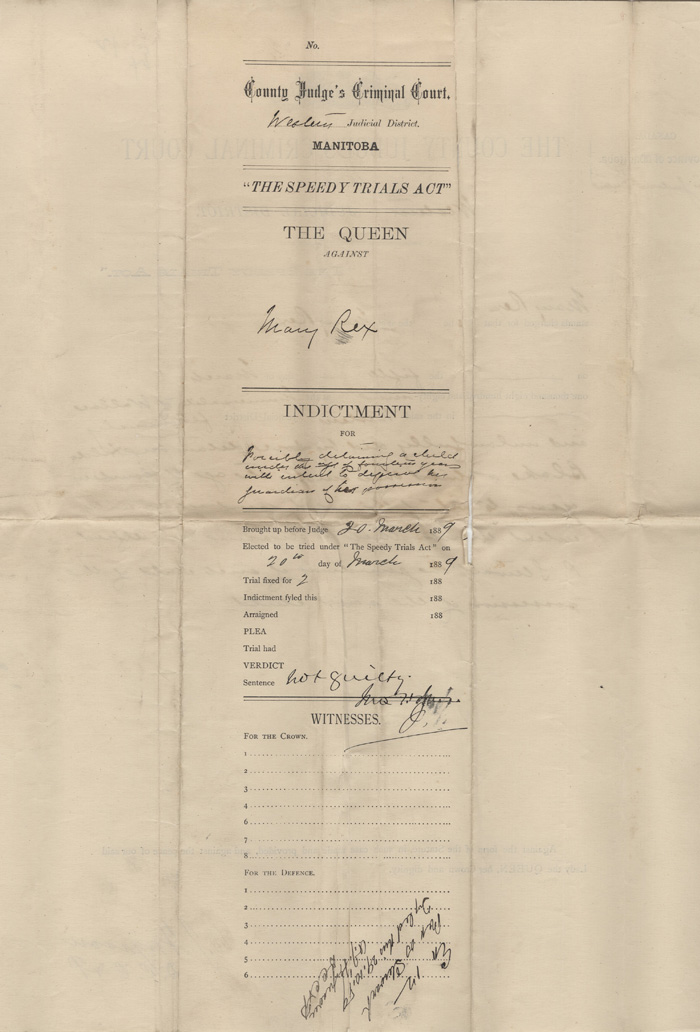 No.
County Judge's Criminal Court.
Western Judicial District.
MANITOBA
"THE SPEEDY TRIALS ACT"
THE QUEEN
AGAINST
Mary Rex
INDICTMENT
FOR
Forcible detaining a child
under the age of fourteen years
with intent to deprive her
guardian of her possession
Brought up before Judge 20 March 1889
Elected to be tried under "The Speedy Trials Act" on
20th day of March 1889
Trial fixed for 2 188
Indictment fyled this 188
Arraigned 188
PLEA
Trial had
VERDICT
Sentence not guilty.
WITNESSES.
FOR THE CROWN.
1
2
3
4
6
7
8
FOR THE DEFENCE.
1
2
3
4
5
6